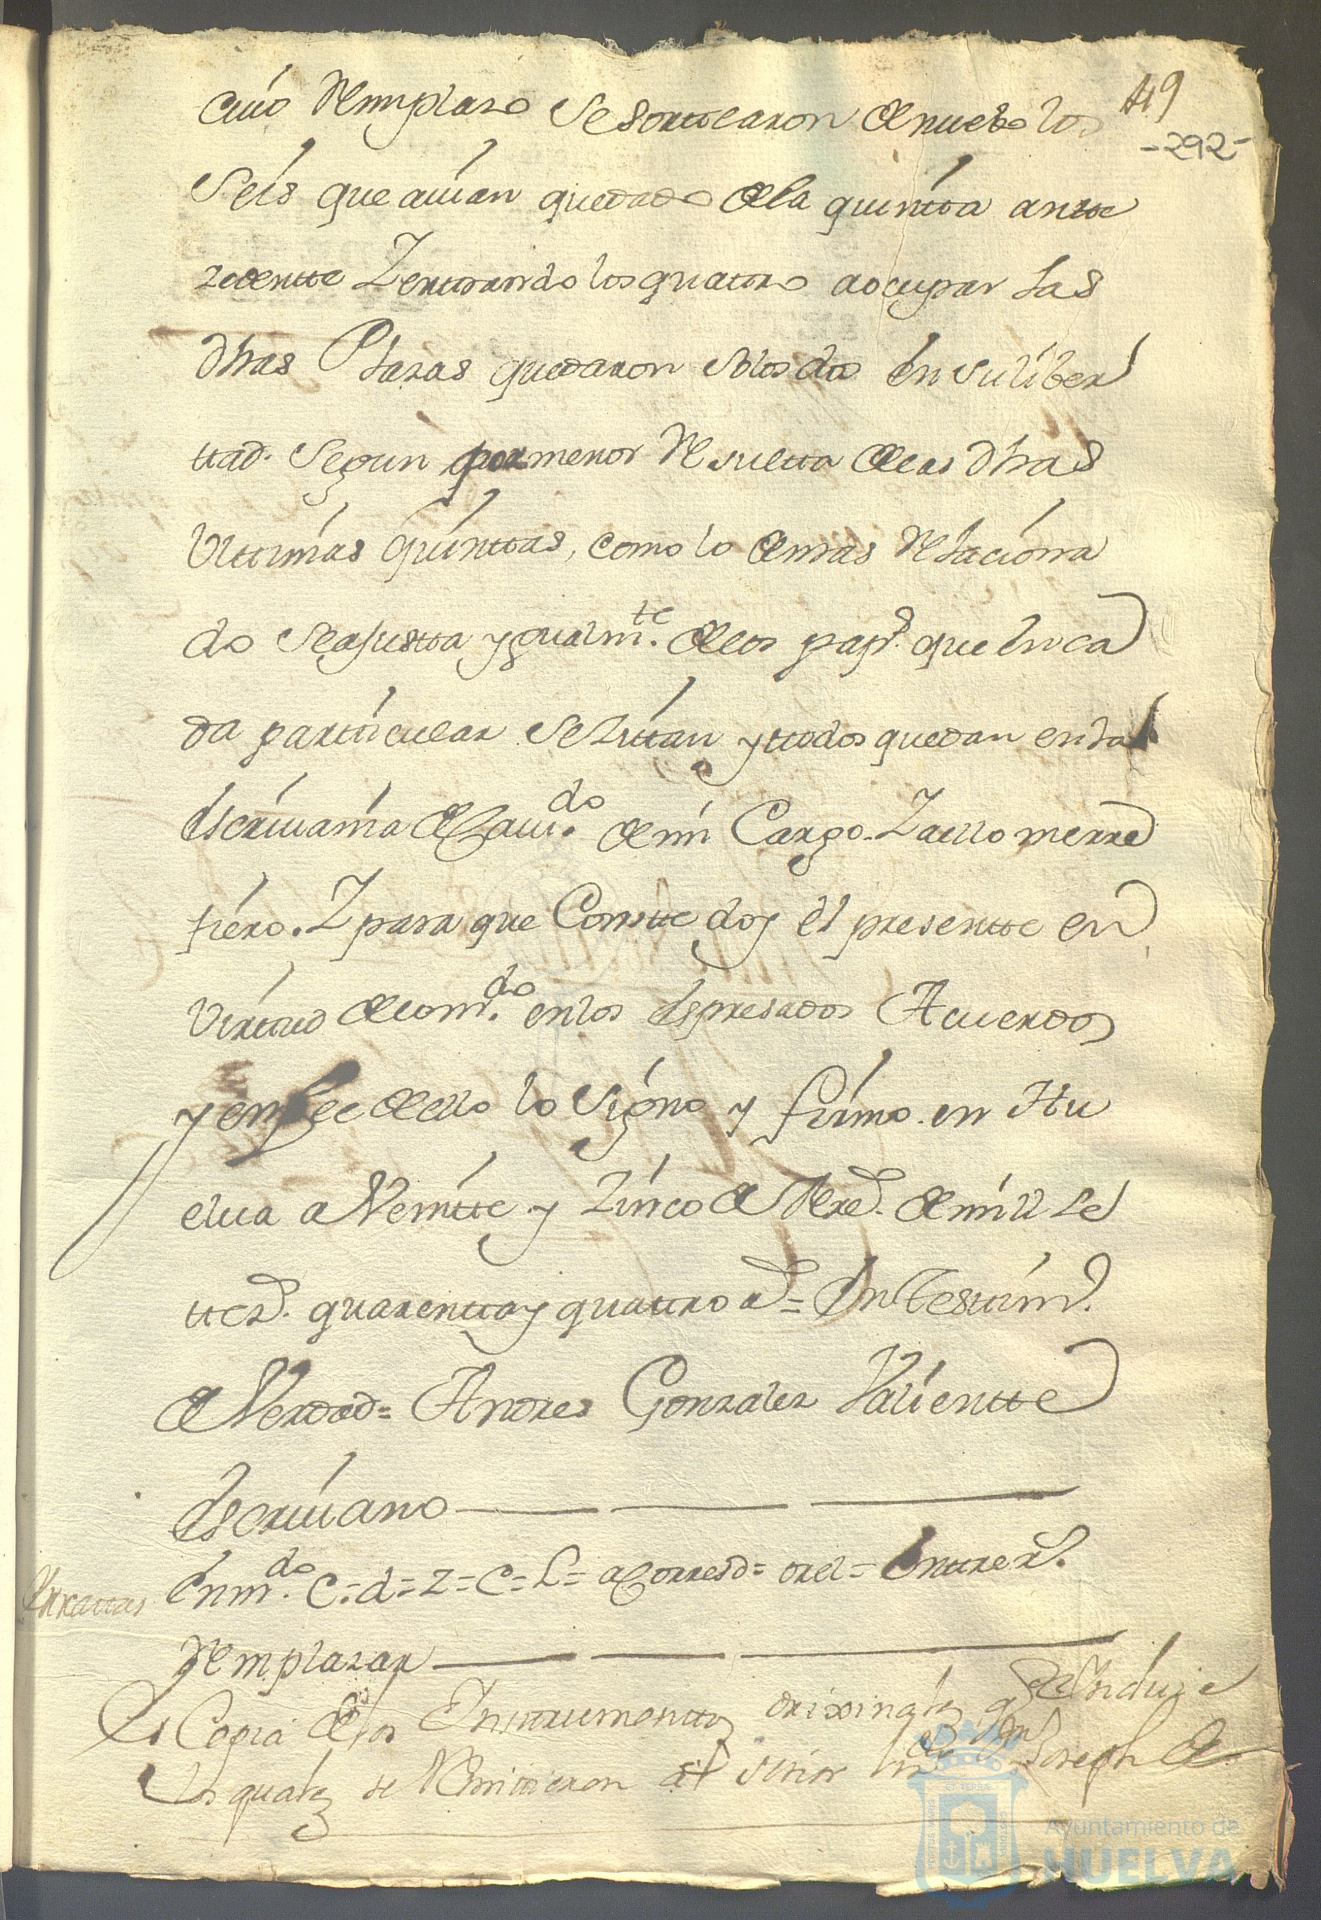 49
-292-
cuio Remplazo se sortearon de nuebo los
seis que auian quedado de la quintta antte
zedentte Z enttrando los quattro a ocupar las
dhas Plazas quedaron solos dos en su liber
ttad. segun por menor Resultta de las dhas
Ulttimas quinttas, como lo demas Relaciona
do se ajustta ygualmte. de los paps. que en ca
da partticular se zittan y ttodos quedan en la
escriuania de Cauido. de mi Cargo. Z a ello me rre
fiero. Z para que Constte doy el presentte en
Virttud de lo mdo. en los espresados Acuerdos
y en fee de ello lo signo y firmo. en Hu
elua a Veintte y Zinco de Hero. de mill se
ttezs. quarentta y quattro as = En Testtimo.
de Verdad = Andres Gonzalez Valientte
escriuano
Enmdo. c = d = z = c = L = a Corresd = orel = Entrers.
Remplazar
Es Copia de los Instrumenttos orixinales qe se Induie
los quales se Remitieron al señor Dn Joseph de
Ayuntamiento de
HUELVA